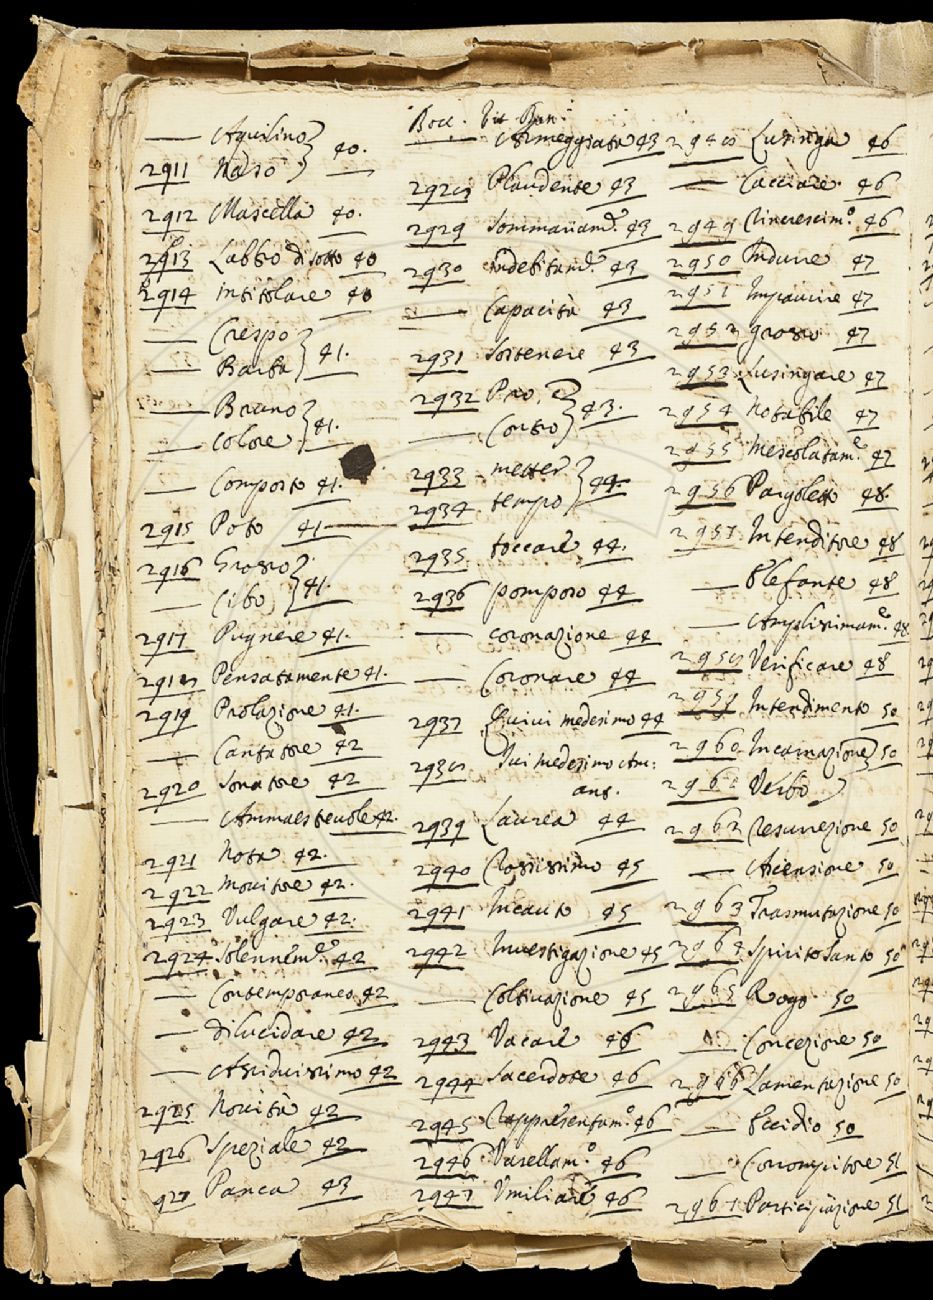 Bocc. Vit Dan.
— Aquilino } 40.
2911 Naso } —
2912 Mascella 40.
2913 Labbro di sotto 40
2914 intitolare 40
— Crespo } 41.
— Barba }
— Bruno } 41.
— Colore }
— Composto 41.
2915 Poto 41
2916 Grosso } 41.
— Cibo }
2917 Pugnere 41.
2918 Pensatamente 41.
2919 Prolazione 41.
— Cantatore 42
2920 Sonatore 42
— Ammaestreuole 42.
2921 Nota 42.
2922 Mouitore 42.
2923 Vulgare 42.
2924 Solennem.te 42
— Contemporaneo 42
— Dilucidare 42
— Assiduissimo 42
2925 Nouità 42
2926 Speziale 42
2927 Panca 43
— Armeggiata 43
2928 Plaudente 43
2929 Sommariam.te 43
2930 indebitam.te 43
— Capacità 43
2931 Sostenere 43
2932 Pro, e } 43.
— Contro }
2933 metter } 44.
2934 tempo }
2935 toccare 44.
2936 pomposo 44
— coronazione 44
— Coronare 44
2937 Quiui medesimo 44
2938 Iui medesimo
2939 Laurea 44
2940 Rossissimo 45
2941 Incauto 45
2942 Inuestigazione 45
— Coltiuazione 45
2943 Vacare 46
2944 Sacerdote 46
2945 Rappresentam.o 46
2946 Vasellam.o 46
2947 Vmiliare 46
2948 Lusinga 46
— Cacciare 46
2949 Rincrescim.o 46
2950 Indurre 47
2951 Impaurire 47
2952 grosso 47
2953 Lusingare 47
2954 Notabile 47
2955 Mescolatam.e 47
2956 Pargoletto 48.
2957 Intenditore 48
— Elefante 48
— Amplissimam.e 48
2958 Verificare 48
2959 Intendimento 50
2960 Incarnazione } 50
2961 Verbo }
2962 Resurrezione 50
— Ascensione 50
2963 Trasmutazione 50
2964 Spirito Santo 50
2965 Rogo 50
— Concezione 50
2966 Lamentazione 50
— Eccidio 50
— Corrompitore 51
2967 Participazione 51